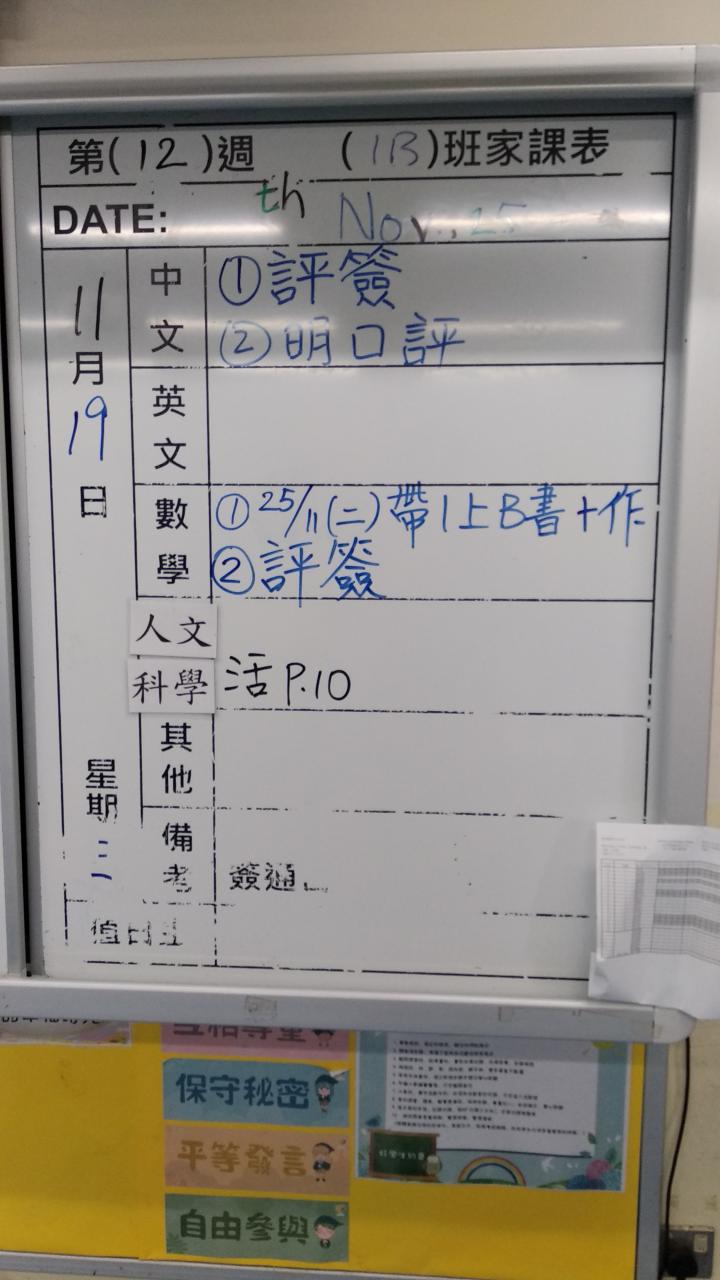 第(12)週 (1B)班家課表
DATE: th Nov., 25
11月19日
星期三
中文
①評簽
②明口評
英文
數學
①25/11(二)帶1上B書+作
②評簽
人文
科學
活P.10
其他
備考
簽通
值日生
互相尊重
保守秘密
平等發言
自由參與